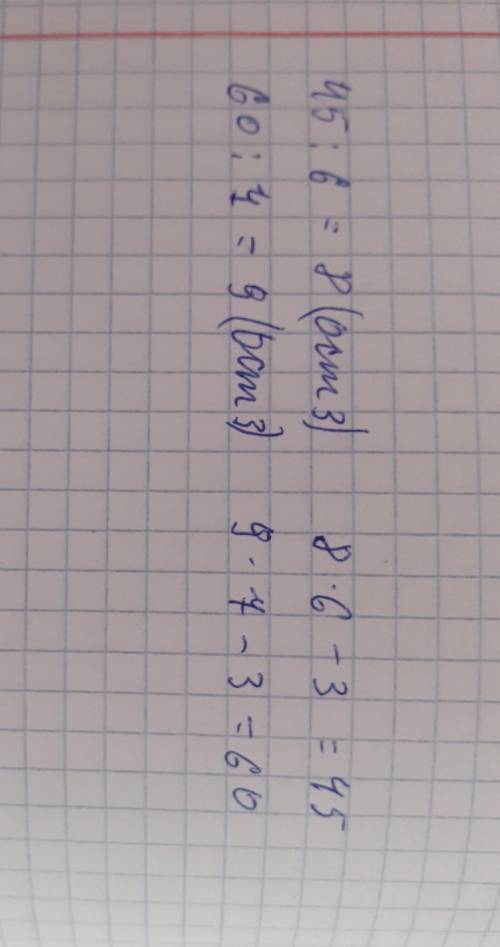 45 : 6 = 8 (ост 3) 8 · 6 - 3 = 45
60 : 7 = 9 (ост 3) 9 · 7 - 3 = 60